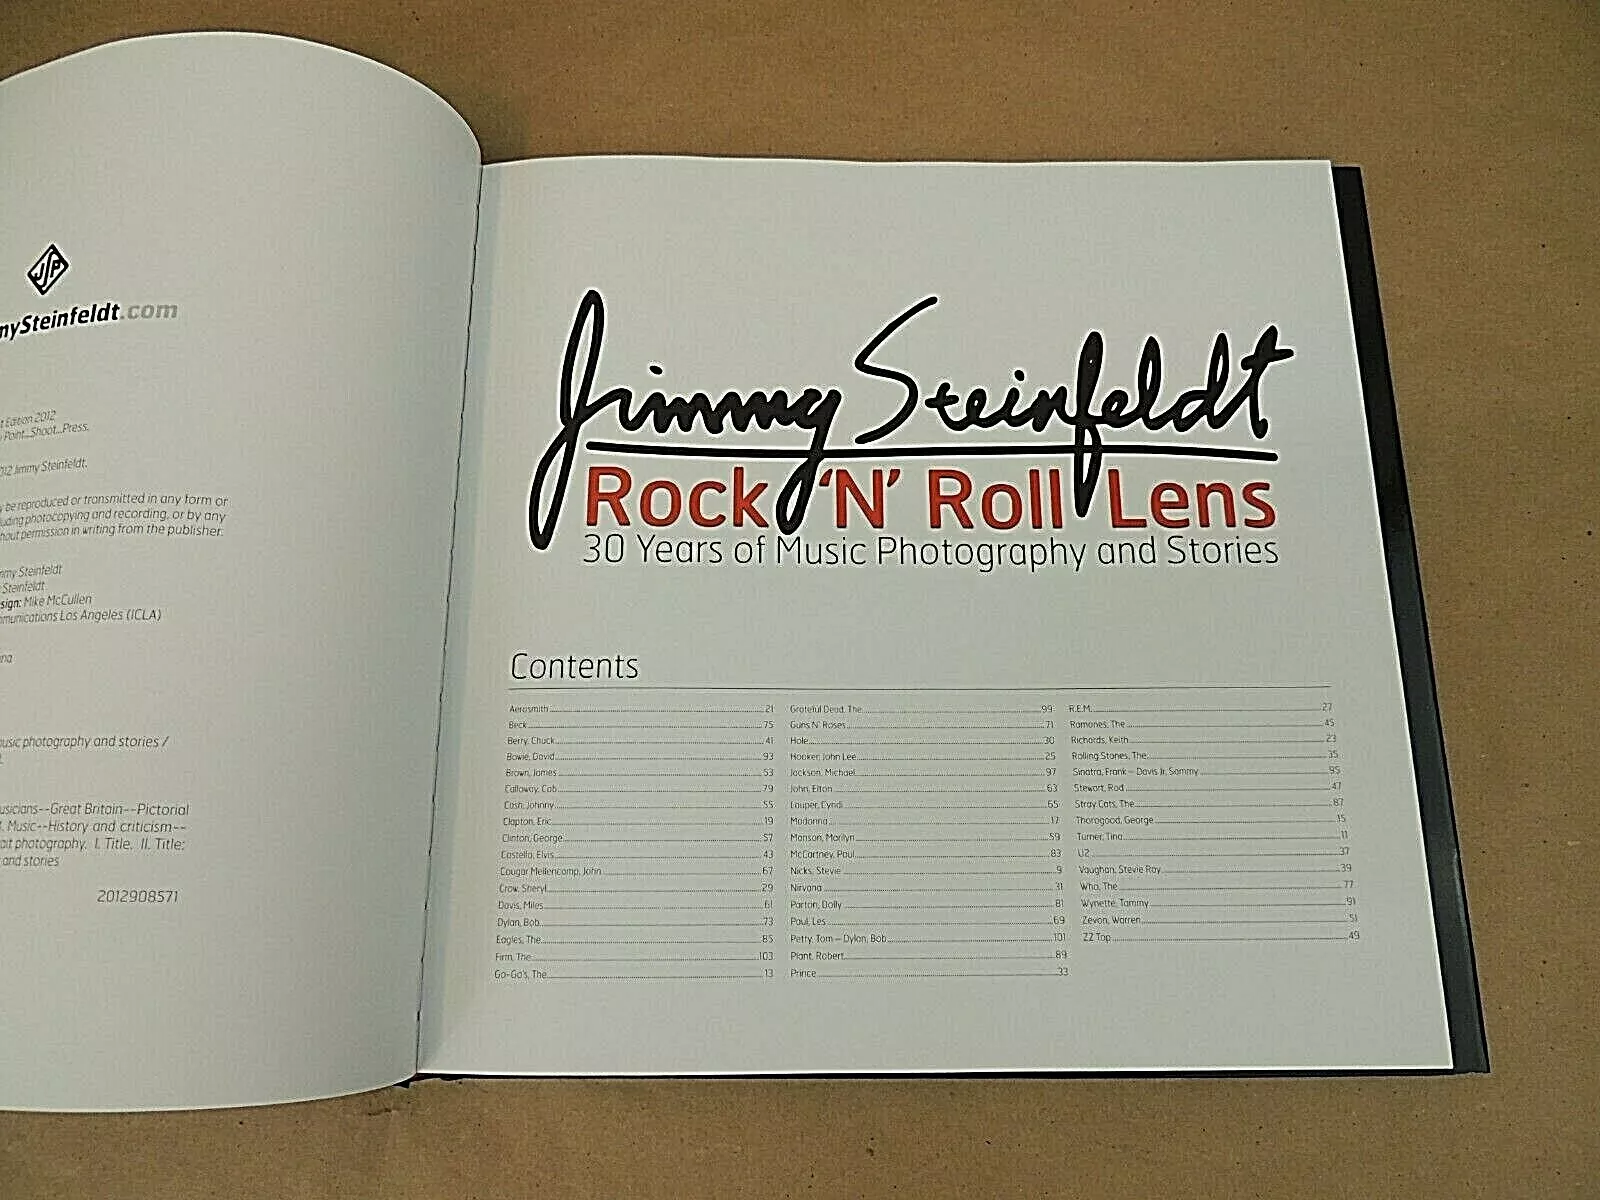 JSP
mySteinfeldt.com
t Edition 2012
Point...Shoot...Press.
012 Jimmy Steinfeldt.
y be reproduced or transmitted in any form or
uding photocopying and recording, or by any
hout permission in writing from the publisher.
mmy Steinfeldt
Steinfeldt
sign: Mike McCullen
mmunications Los Angeles (ICLA)
na
usic photography and stories /
usicians--Great Britain--Pictorial
. Music--History and criticism--
ait photography. I. Title. II. Title:
and stories
2012908571
Jimmy Steinfeldt
Rock 'N' Roll Lens
30 Years of Music Photography and Stories
Contents
Aerosmith 21
Beck 75
Berry, Chuck 41
Bowie, David 93
Brown, James 53
Calloway, Cab 79
Cash, Johnny 55
Clapton, Eric 19
Clinton, George 57
Costello, Elvis 43
Cougar Mellencamp, John 67
Crow, Sheryl 29
Davis, Miles 61
Dylan, Bob 73
Eagles, The 85
Firm, The 103
Go-Go's, The 13
Grateful Dead, The 99
Guns N' Roses 71
Hole 30
Hooker, John Lee 25
Jackson, Michael 97
John, Elton 63
Lauper, Cyndi 65
Madonna 17
Manson, Marilyn 59
McCartney, Paul 83
Nicks, Stevie 9
Nirvana 31
Parton, Dolly 81
Paul, Les 69
Petty, Tom – Dylan, Bob 101
Plant, Robert 89
Prince 33
R.E.M. 27
Ramones, The 45
Richards, Keith 23
Rolling Stones, The 35
Sinatra, Frank – Davis Jr, Sammy 95
Stewart, Rod 47
Stray Cats, The 87
Thorogood, George 15
Turner, Tina 11
U2 37
Vaughan, Stevie Ray 39
Who, The 77
Wynette, Tammy 91
Zevon, Warren 51
ZZ Top 49